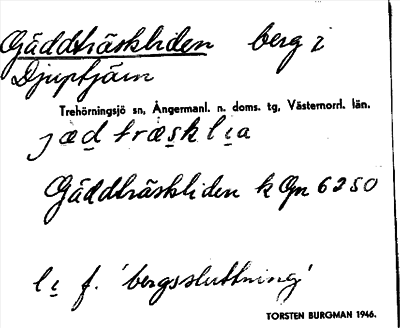 Gäddträskliden berg i
Djuptjärn
Trehörningsjö sn, Ångermanl. n. doms. tg, Västernorrl. län.
jæd træsklıa
Gäddträskliden k Gn 6250
lı f. 'bergssluttning'
TORSTEN BURGMAN 1946.